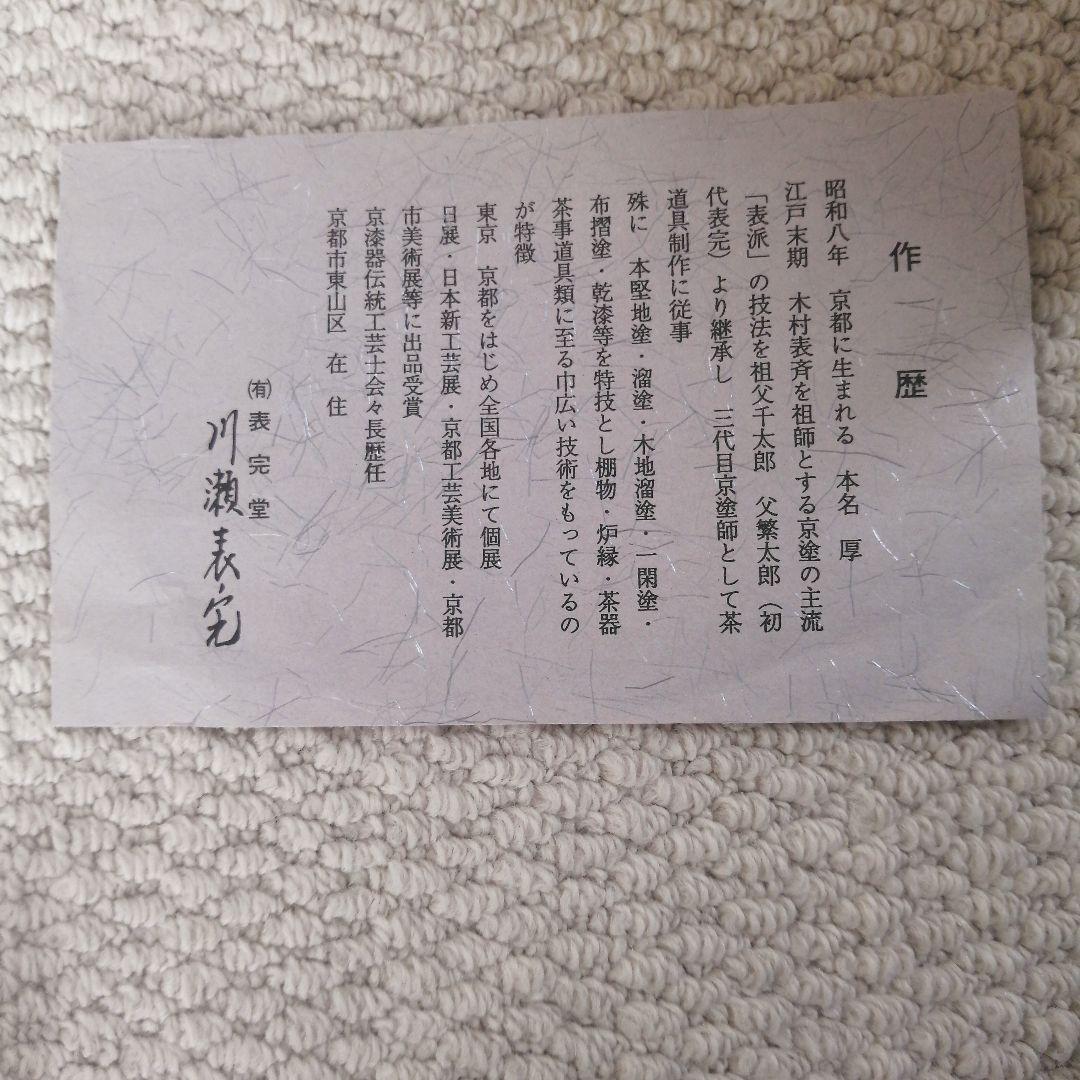 作歴
昭和八年 京都に生まれる 本名 厚
江戸末期 木村表斉を祖師とする京塗の主流
「表派」の技法を祖父千太郎 父繁太郎（初
代表完）より継承し 三代目京塗師として茶
道具制作に従事
殊に 本堅地塗・溜塗・木地溜塗・一閑塗・
布摺塗・乾漆等を特技とし棚物・炉縁・茶器
茶事道具類に至る巾広い技術をもっているの
が特徴
東京 京都をはじめ全国各地にて個展
日展・日本新工芸展・京都工芸美術展・京都
市美術展等に出品受賞
京漆器伝統工芸士会々長歴任
京都市東山区 在住
㈲表完堂
川瀬表完